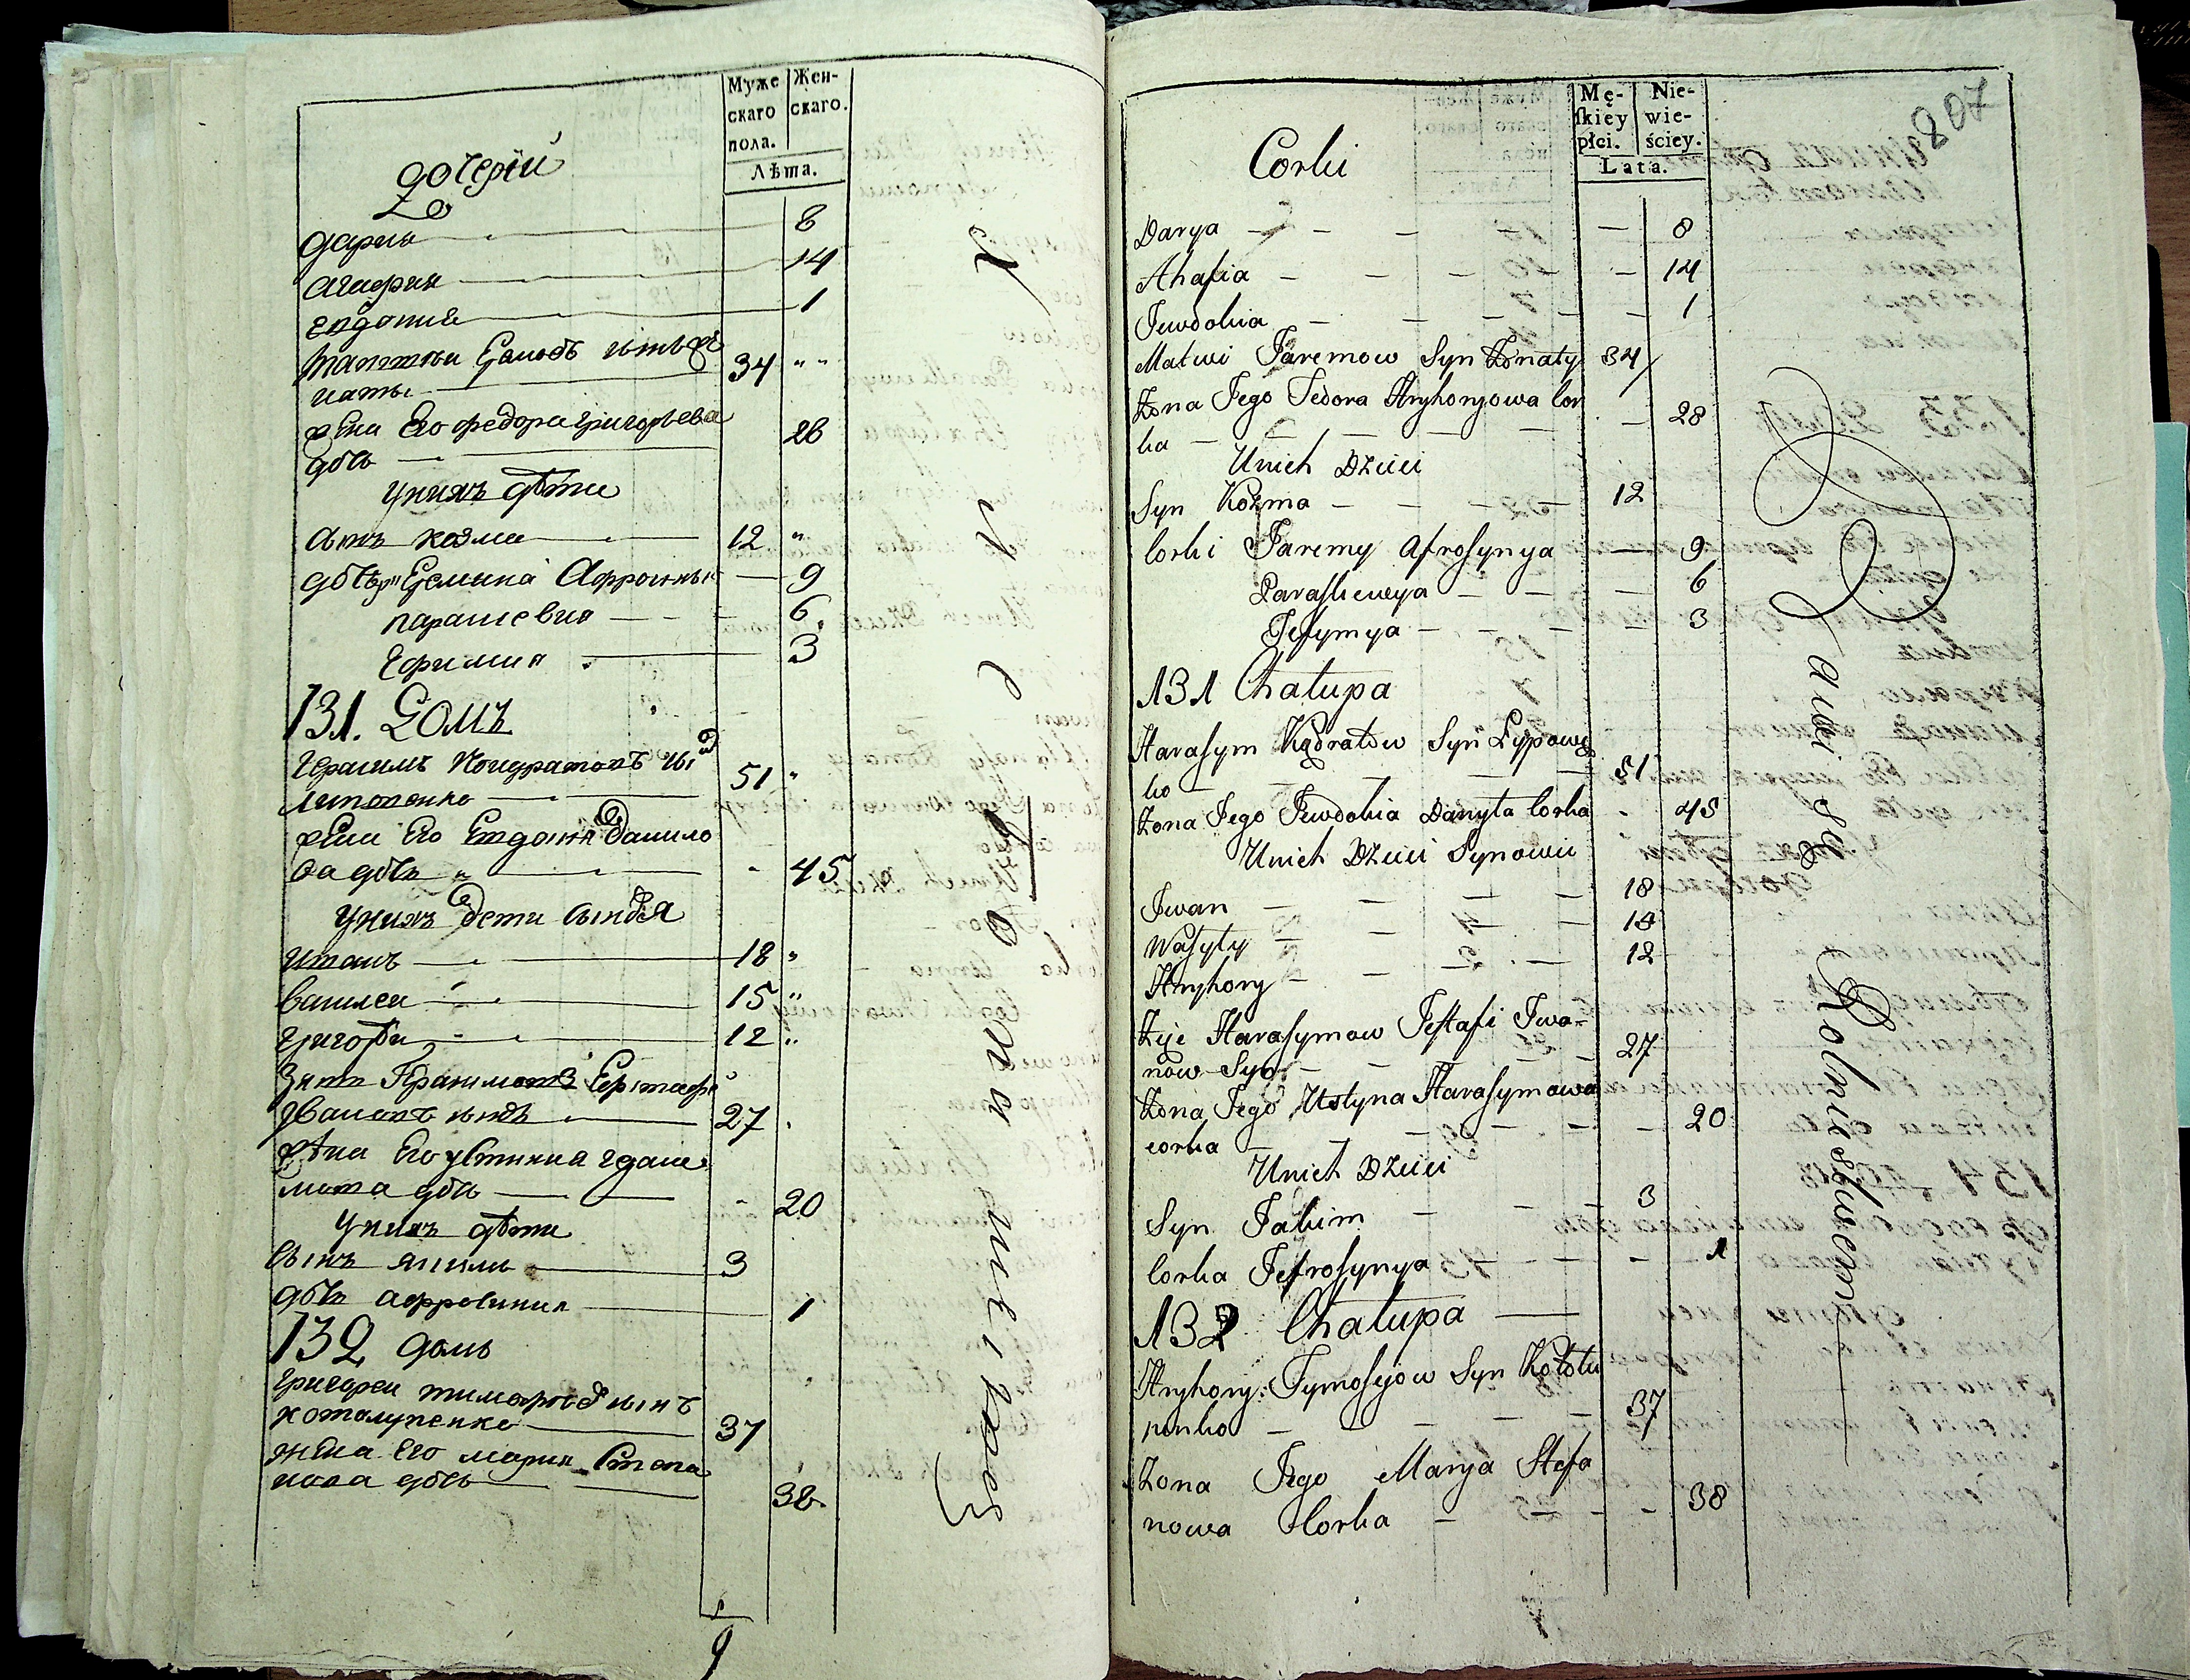 Муже
скаго
пола.
Жен-
скаго.
Лѣта.
дочерии
дария 8
агафия 14
евдокия 1
матвеи Еремовъ сынъ
наты 34
жена Его федора григорьева
дочь 28
у нихъ дѣти
сынъ козма 12
дочери Еремина Афросиния 9
парасковия 6
Ефимия 3
131. Домъ
Герасимъ Кондратовъ сынъ
липовенко 51
жена Его Евдокия данило
ва дочь 45
у нихъ дети сыновья
иванъ 18
василеи 15
григореи 12
Зять Гарасимовъ Евстафе
Ивановъ сынъ 27
жена Его устиния гараси
мова дочь 20
у нихъ дѣти
сынъ якимъ 3
дочь афросиния 1
132 домъ
григореи тимофеевъ сынъ
котолупенко 37
жена Его мария Степа
нова дочь 38
9
807
Mę-
skiey
płci.
Nie-
wie-
ściey.
Lata.
Corki
Darya 8
Ahafia 14
Jewdokia 1
Matwi Jaremow Syn Konaty 34
Zona Jego Fedora Hryhoryowa Cor
ka 28
Unich Dzieci
Syn Kozma 12
Corki Jaremy Afrosynya 9
Paraskiewya 6
Jefymya 3
131 Chałupa
Harasym Kądratow Syn Łypowe
ko 51
Zona Jego Jewdokia Danyła Corka 45
Unich Dzieci Synowie
Jwan 18
Wasyly 15
Hryhory 12
Zięć Harasymow Jestafi Jwa-
now Syn 27
Zona Jego Ustyna Harasymowa
corka 20
Unich Dzieci
Syn Jakim 3
Corka Jefrosynya 1
132 Chałupa
Hryhory Tymosyow Syn Kotołu
penko 37
Zona Jego Marya Stefa
nowa Corka 38
Robnieństwem